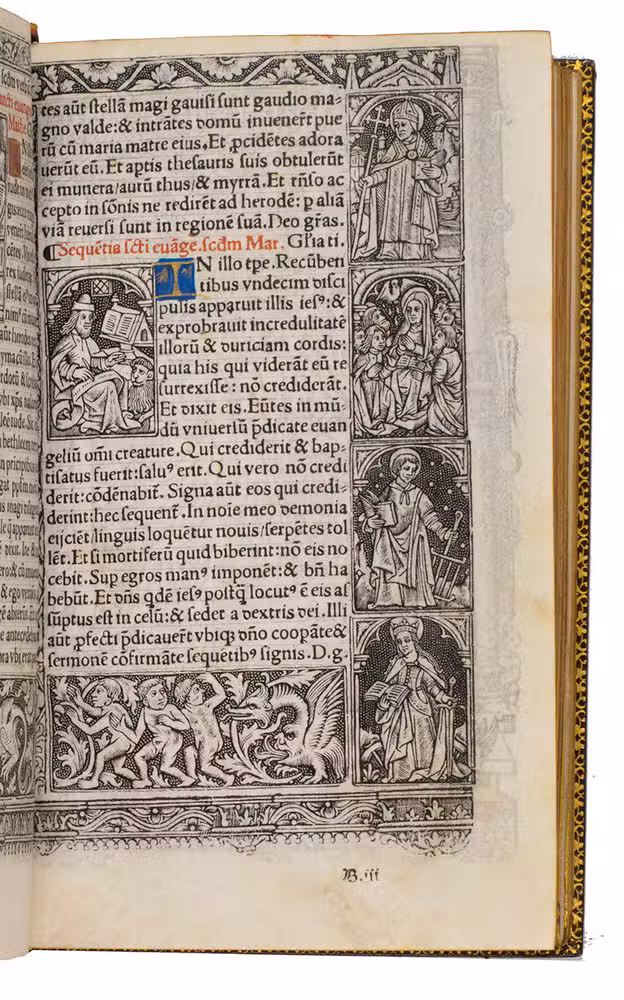 tes aūt stellā magi gauisi sunt gaudio ma⸗
gno valde:& intrātes domū inuenerūt pue
rū cū maria matre eius. Et ꝓcidētes adora
uerūt eū. Et aptis thesauris suis obtulerūt
ei munera/aurū thus/& myrrā. Et rñso ac
cepto in sōnis ne redirēt ad herodē: p aliā
viā reuersi sunt in regionē suā. Deo grās.
¶Sequētia scti euāge. scdm Mar. Glīa ti.
IN illo tpe. Recūben
tibus vndecim disci
pulis apparuit illis iesꝰ:&
exprobrauit incredulitatē
illorū & duriciam cordis:
quia his qui viderāt eū re
surrexisse: nō crediderāt.
Et dixit eis. Eūtes in mū⸗
dū vniuersū p̄dicate euan
geliū omi creature. Qui crediderit & bap⸗
tisatus fuerit: saluꝰ erit. Qui vero nō credi
derit: cōdēnabit̄. Signa aūt eos qui credi⸗
derint: hec sequent̄. In noie meo demonia
eijciēt/linguis loquētur nouis/serpētes tol
lēt. Et si mortiferū quid biberint: nō eis no
cebit. Sup egros manꝰ imponēt: & bn̄ ha
bebūt. Et dn̄s qdē iesꝰ postq̄ locutꝰ ē eis as
sūptus est in celū: & sedet a dextris dei. Illi
aūt ꝓfecti p̄dicauerūt vbiqꝫ dn̄o coopāte&
sermonē cōfirmāte sequētibꝰ signis. D. g.
B.iii